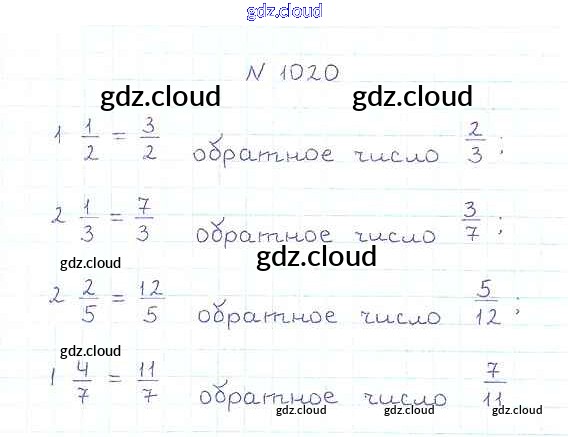 gdz.cloud
N 1020
gdz.cloud gdz.cloud
1 1/2 = 3/2 обратное число 2/3;
2 1/3 = 7/3 обратное число 3/7;
gdz.cloud gdz.cloud
2 2/5 = 12/5 обратное число 5/12;
gdz.cloud
1 4/7 = 11/7 обратное число 7/11
gdz.cloud gdz.cloud